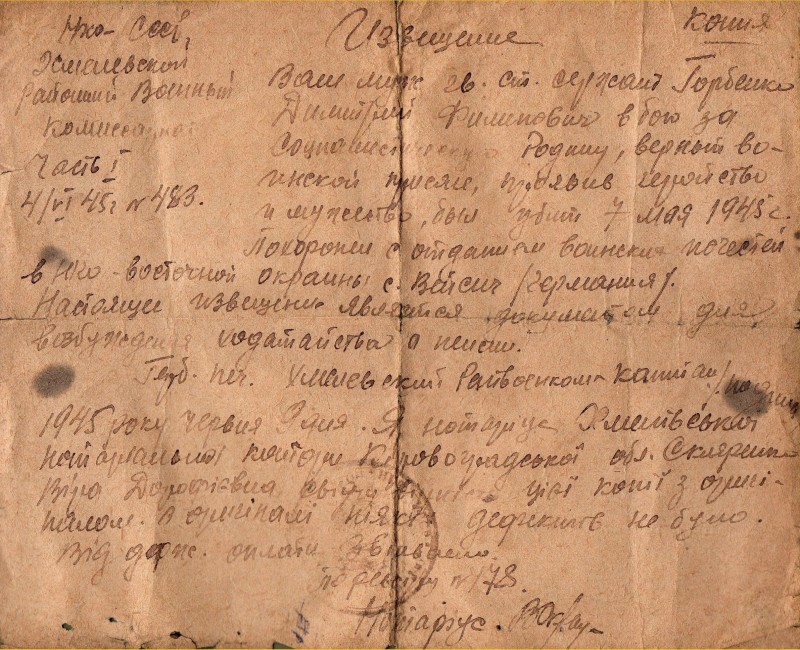 Нко - СССР,
Хмелевской
Районный Военный
Комиссариат
Часть I
4/VI 45г № 483.
Копия
Извещение
Ваш муж гв. ст. сержант Горбенко
Димитрий Филипович в бою за
Социалистическую Родину, верный во-
инской присяге, проявив геройство
и мужество, был убит 7 мая 1945 г.
Похоронен с отданием воинских почестей
в Юго-восточной окраины с. Вейсич /Германия/.
Настоящее извещение является документом для
возбуждения ходатайства о пенсии.
Герб. печ. Хмелевский Райвоенком капитан /подпись/
1945 року червня 9 дня. Я нотаріус Хмелівської
нотаріальної контори Кіровоградської обл. Скляренко
Віра Дорофіївна свідчу вірність цієї копії з оригі-
налом. В оригіналі ніяких дефектів не було.
Від держ. оплати звільнено.
По реєстру № 178.
Нотаріус.